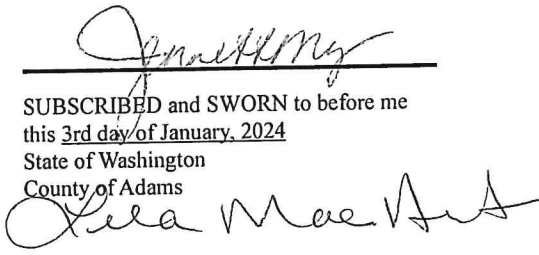 SUBSCRIBED and SWORN to before me
this 3rd day of January, 2024
State of Washington
County of Adams
Lela Mae